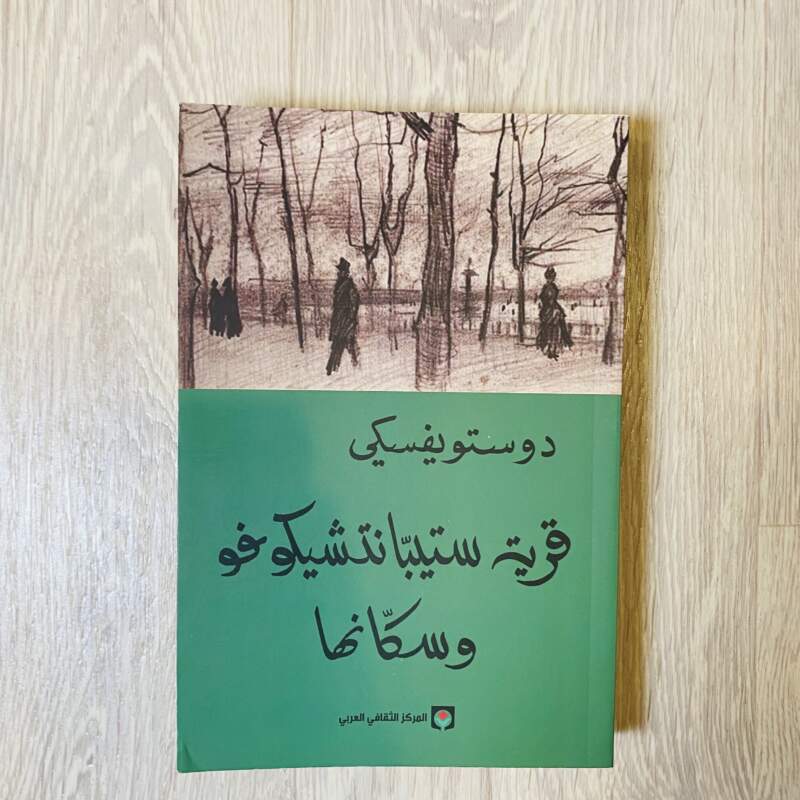 دوستويفسكي
قرية ستيبّانتشيكوفو
وسكّانها
المركز الثقافي العربي